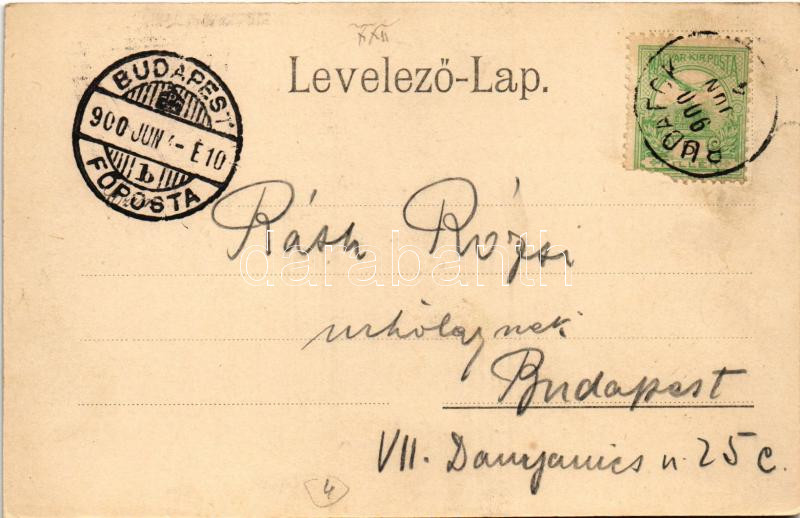 Levelező-Lap.
BUDAPEST
900 JUN 4-É10
b
FŐPOSTA
MAGYAR·KIR·POSTA
BUDAFOK
900
JUN
Ráth Rózsi
urhölgynek
Budapest
VII. Damjanics u. 25 c.
4
darabanth